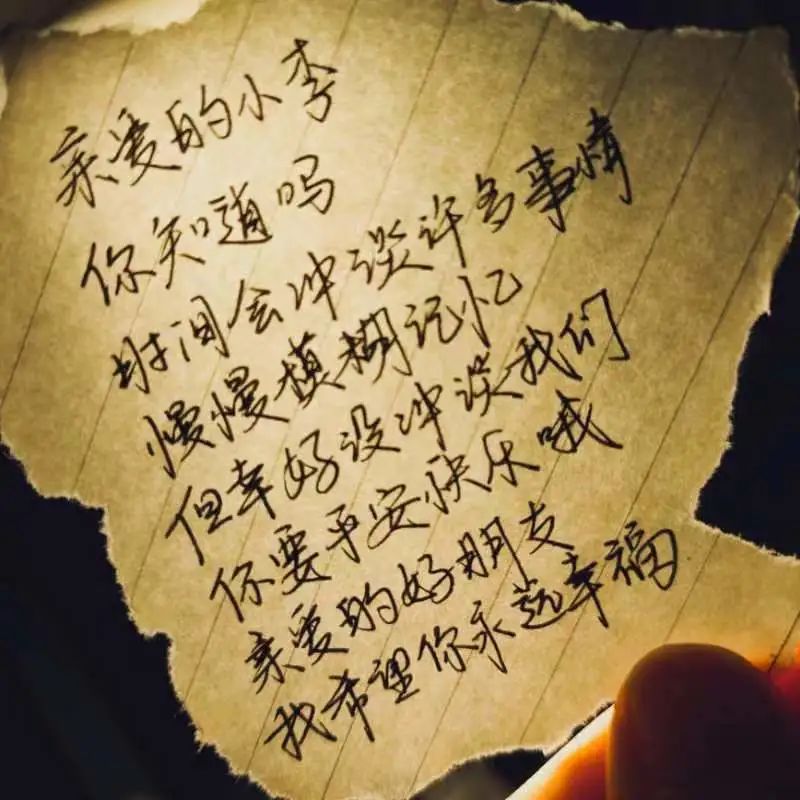 亲爱的小李
你知道吗
时间会冲淡许多事情
慢慢模糊记忆
但幸好没冲淡我们
你要平安快乐哦
亲爱的好朋友
我希望你永远幸福